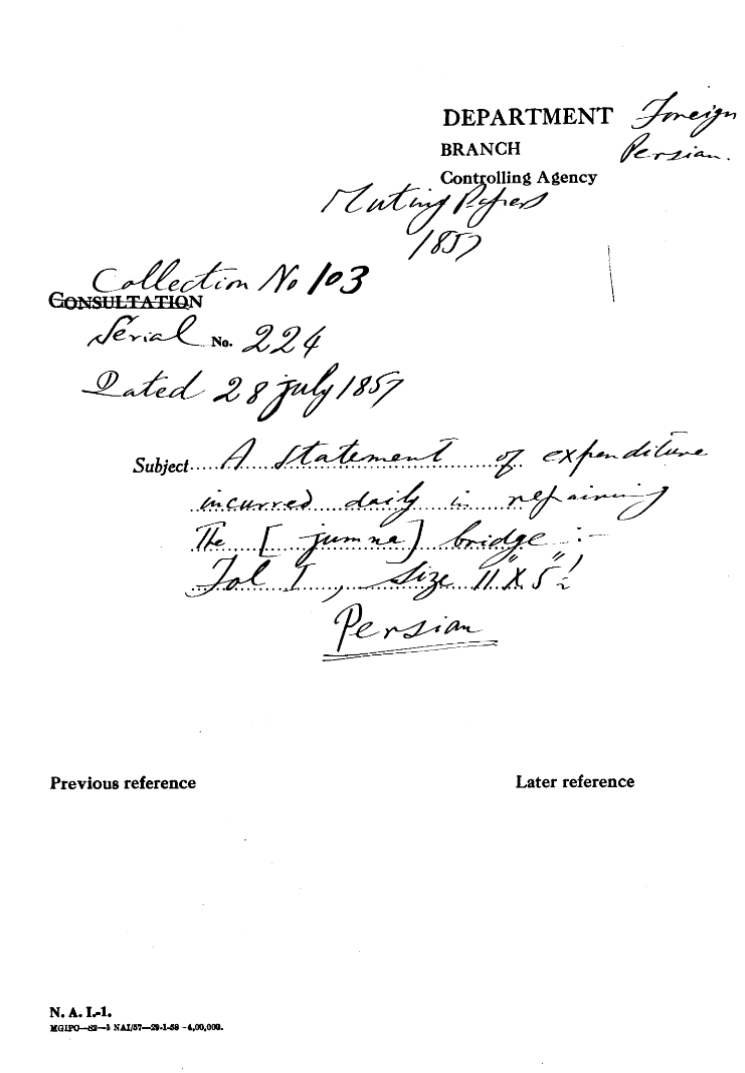 DEPARTMENT Foreign
BRANCH Persian.
Controlling Agency
Mutiny Papers
1857
Collection No 103
CONSULTATION
Serial No. 224
Dated 28 july 1857
Subject A statement of expenditure
incurred daily in repairing
The [ jumna ] bridge :-
Fol I, size 11" X 5"
Persian
Previous reference Later reference
N. A. I.-1.
MGIPC—82—1 NAI/57—29-1-58 -4,00,000.